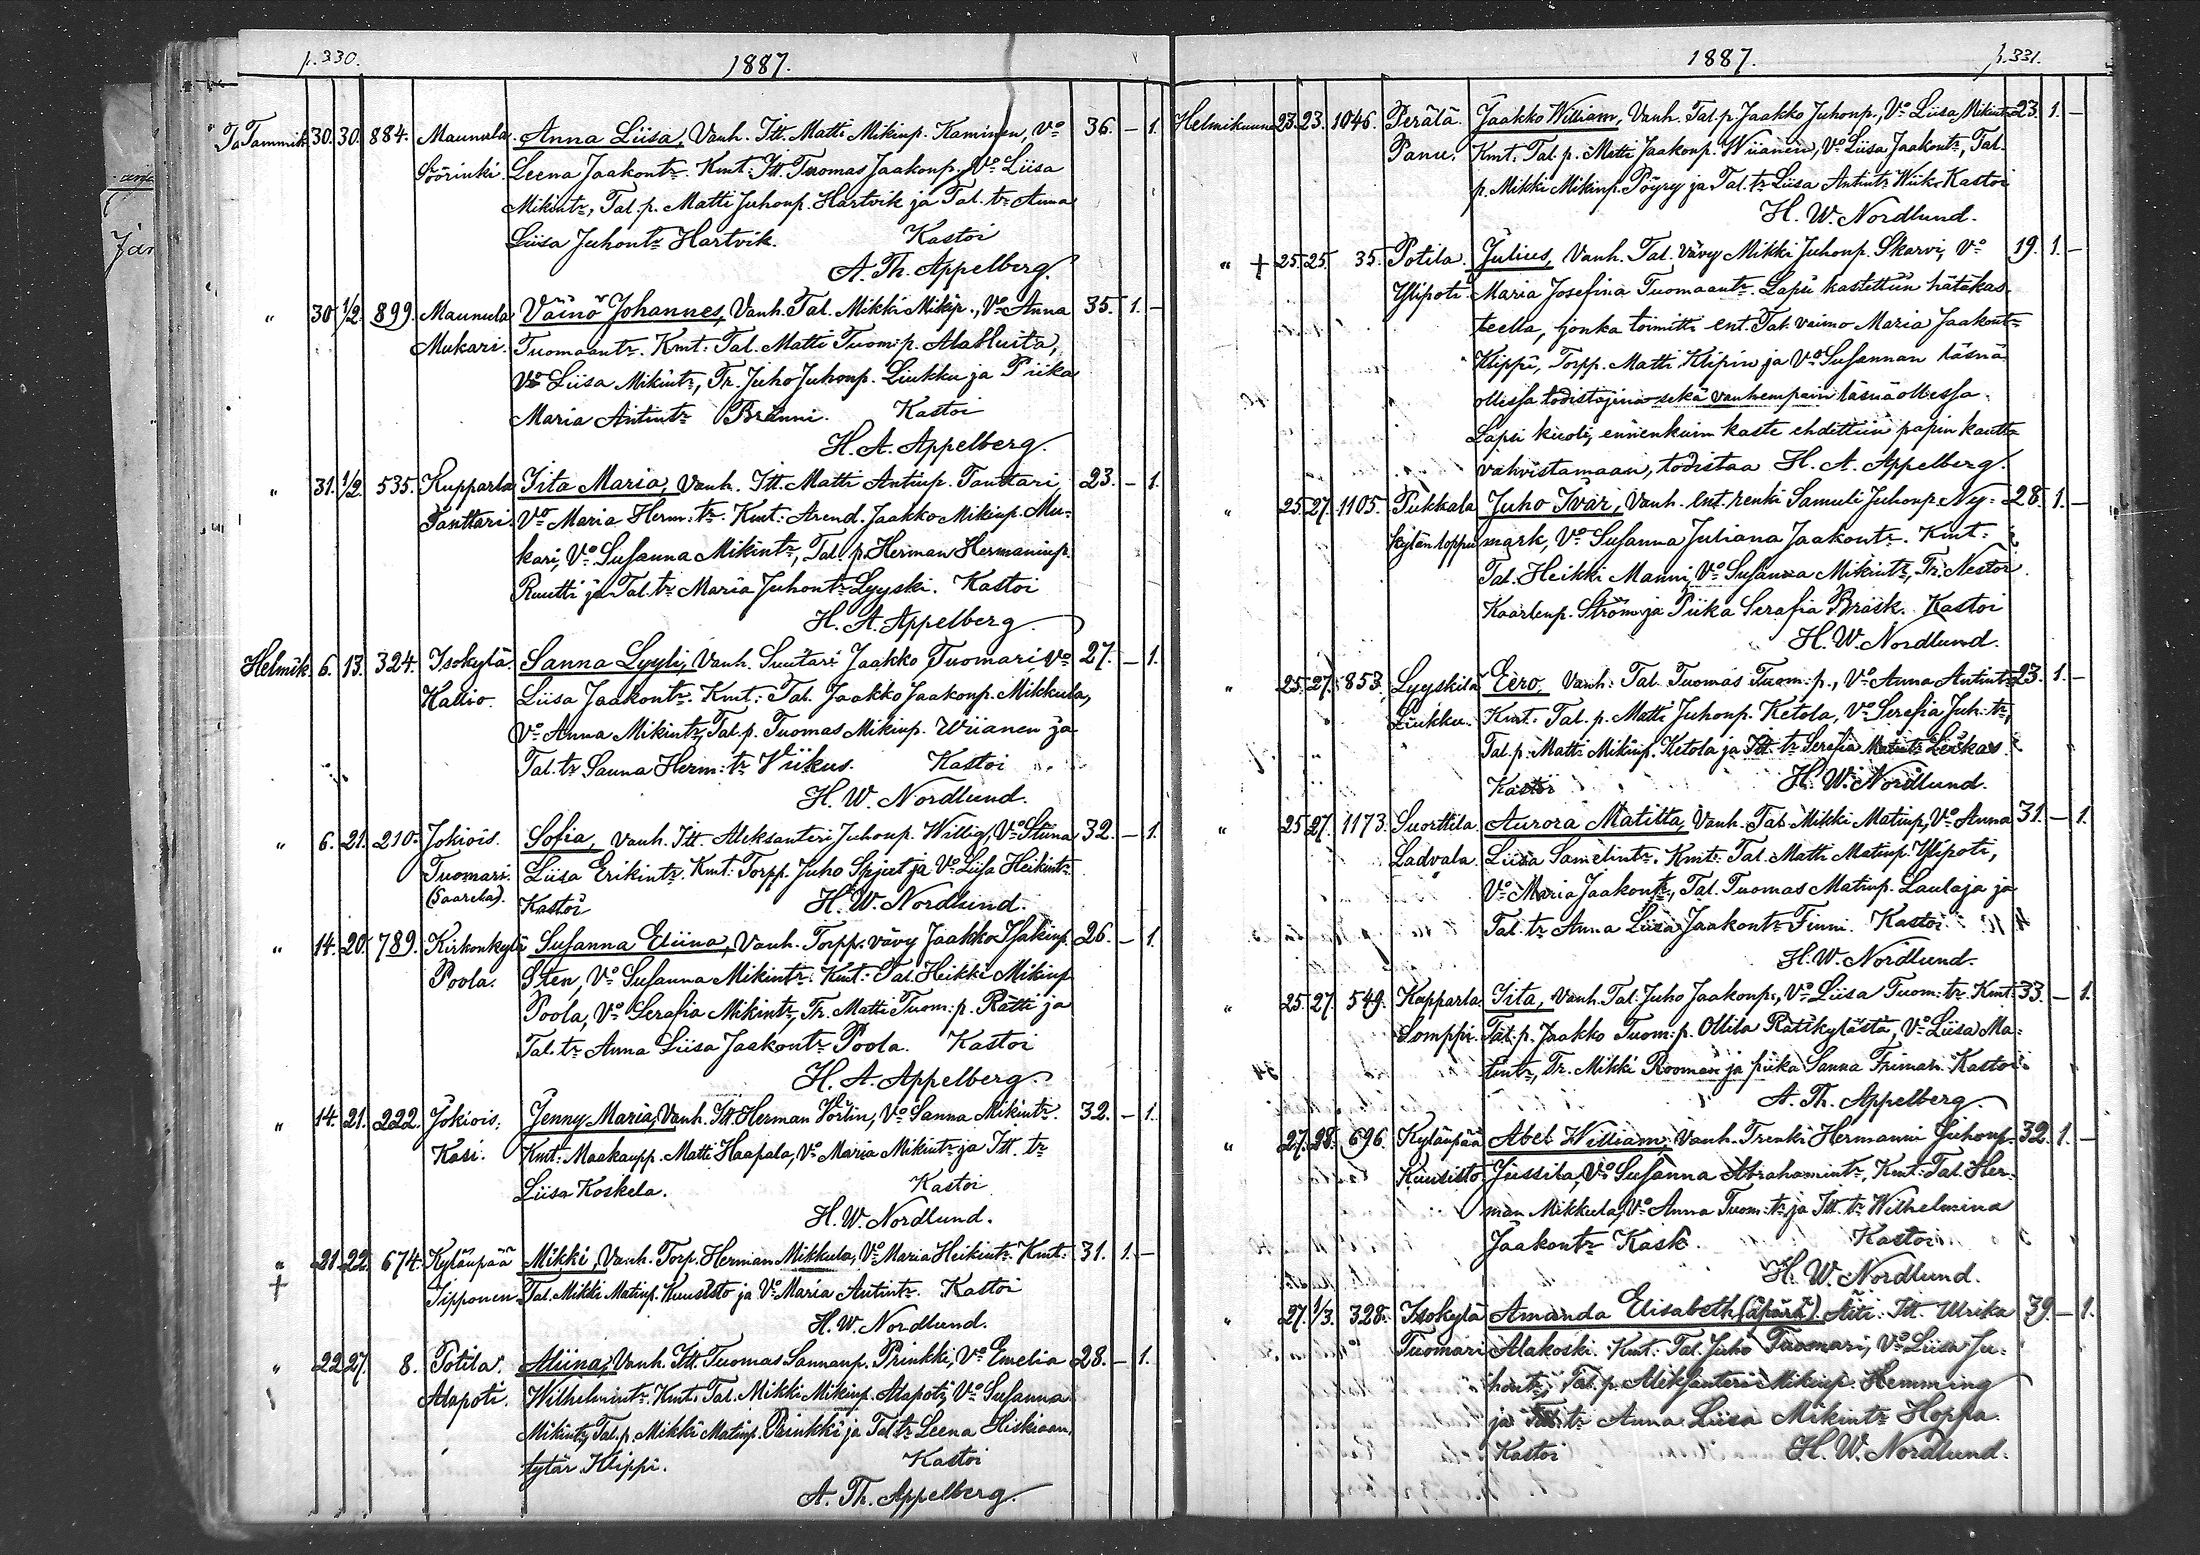 p. 330.
1887.
Tammik. 30. 30. 884. Maunula. Anna Liisa, Vanh. Itt. Matti Mikinp. Kaminen, Vo 36. – 1.
Göörinki. Leena Jaakontr. Kmt: Itt. Tuomas Jaakonp., Vo Liisa
Mikintr, Tal. p. Matti Juhonp. Hartvik ja Tal. tr Anna
Liisa Juhontr Hartvik. Kastoi
A. Th. Appelberg.
" 30 1/2. 899. Maunula Väinö Johannes, Vanh. Tal. Mikki Mikip., Vo Anna 35. 1. –
Mukari. Tuomaantr. Kmt: Tal. Matti Tuom: p. AlaHuita,
Vo Liisa Mikintr, Tr. Juho Juhonp. Liukku ja Piika
Maria Antintr Bränni. Kastoi
H. A. Appelberg.
" 31. 1/2. 535. Kupparla Iita Maria, Vanh. Itt. Matti Antinp. Tanttari, 23. – 1.
Tanttari. Vo Maria Herm: tr. Kmt: Arend. Jaakko Mikinp. Mu-
kari, Vo Susanna Mikintr, Tal. p. Herman Hermaninp.
Ruutti ja Tal. tr Maria Juhontr Lyyski. Kastoi
H. A. Appelberg.
Helmik. 6. 13. 324. Isokylä. Sanna Lyyli, Vanh. Suutari Jaakko Tuomari Vo 27. – 1.
Kallio. Liisa Jaakontr. Kmt: Tal. Jaakko Jaakonp. Mikkula,
Vo Anna Mikintr, Tal. p. Tuomas Mikinp. Wiianen ja
Tal. tr Sanna Herm: tr Viikus. Kastoi
H. W. Nordlund.
" 6. 21. 210. Jokiois. Sofia, Vanh. Itt. Aleksanteri Juhonp. Willig, Vo Stiina 32. – 1.
Tuomari. Liisa Erikintr. Kmt: Torpp. Juho Spjut ja Vo Liisa Heikintr.
(Saarela). Kastoi H. W. Nordlund.
" 14. 20. 789. Kirkonkylä Susanna Eliina, Vanh. Torpp. vävy Jaakko Isakinp. 26. – 1.
Poola. Sten, Vo Susanna Mikintr. Kmt: Tal. Heikki Mikinp
Poola, Vo Serafia Mikintr, Tr. Matti Tuom: p. Rätti ja
Tal. tr Anna Liisa Jaakontr Poola. Kastoi
H. A. Appelberg.
" 14. 21. 222. Jokiois. Jenny Maria, Vanh. Itt. Herman Förlin, Vo Sanna Mikintr. 32. – 1.
Kasi. Kmt: Maakaupp. Matti Haapala, Vo Maria Mikintr ja Itt. tr
Liisa Koskela. Kastoi
H. W. Nordlund.
" + 21. 22. 674. Kylänpää Mikki, Vanh. Torp. Herman Mikkula, Vo Maria Heikintr. Kmt: 31. 1. –
Sipponen. Tal. Mikki Matinp. Kuusisto ja Vo Maria Antintr. Kastoi
H. W. Nordlund.
" 22 27. 8. Potila. Aliina, Vanh. Itt. Tuomas Sannanp. Prinkki, Vo Emelia 28. – 1.
Alapoti. Wilhelmintr. Kmt: Tal. Mikki Mikinp. Alapoti, Vo Susanna
Mikintr, Tal. p. Mikki Matinp. Prinkki ja Tal tr Leena Hiskiaan,
tytär Klippi. Kastoi
A. Th. Appelberg.
1887.
p. 331.
Helmikuuna 23. 23. 1046. Perälä. Jaakko William, Vanh. Tal. p. Jaakko Juhonp., Vo Liisa Mikintr. 23. 1. –
Panu. Kmt. Tal. p. Matti Jaakonp. Wiianen, Vo Liisa Jaakontr, Tal.
p. Mikki Mikinp. Pöyry ja Tal. tr Liisa Antintr Wiik. Kastoi
H. W. Nordlund.
" + 25. 25. 35. Potila. Julius, Vanh. Tal. Vävy Mikki Juhonp. Skarvi, Vo 19. 1. –
Ylipoti. Maria Josefina Tuomaantr. Lapsi kastettiin hätäkas-
teella, jonka toimitti ent. Tal. vaimo Maria Jaakontr
Klippi, Torpp. Matti Klipin ja Vo Susannan läsnä
ollessa todistajina sekä vanhempain läsnäollessa.
Lapsi kuoli, ennenkuin kaste ehdittiin papin kautta
vahvistamaan, todistaa H. A. Appelberg.
" 25. 27. 1105. Pukkala Juho Ivar, Vanh. ent. renki Samuli Juhonp. Ny- 28. 1. –
kylän loppu mark, Vo Susanna Juliana Jaakontr. Kmt:
Tal. Heikki Manni, Vo Susanna Mikintr, Tr. Nestor
Kaarlenp. Ström ja Piika Serafia Bräsk. Kastoi
H. W. Nordlund.
" 25. 27. 853. Lyyskilä Eero, Vanh: Tal. Tuomas Tuom: p., Vo Anna Antintr. 23. 1. –
Liukku. Kmt. Tal. p. Matti Juhonp. Ketola, Vo Serefia Juh: tr,
Tal. p. Matti Mikinp. Ketola ja Itt. tr Serafia Matintr Leskas.
Kastoi H. W. Nordlund.
" 25 27. 1173. Suorttila Aurora Matilta, Vanh. Tal. Mikki Matinp, Vo Anna 31. – 1.
Ladvala. Liisa Samelintr. Kmt: Tal. Matti Matinp. Ylipoti,
Vo Maria Jaakontr, Tal. Tuomas Matinp. Laulaja ja
Tal. tr Anna Liisa Jaakontr Finni. Kastoi
H. W. Nordlund.
" 25. 27. 549. Kupparla. Iita, Vanh. Tal. Juho Jaakonp., Vo Liisa Tuom: tr. Kmt. 33. – 1.
Somppi. Tal. p. Jaakko Tuom: p. Ollila Rätikylästä, Vo Liisa Ma-
tintr, Tr. Mikki Rooman ja piika Sanna Friman. Kastoi
A. Th. Appelberg.
" 27. 28. 696. Kylänpää Abel William, Vanh. Trenki Hermanni Juhonp. 32. 1. –
Kuusisto. Jussila, Vo Susanna Abrahamintr, Kmt: Tal. Her-
man Mikkula, Vo Anna Tuom: tr ja Itt. tr Wilhelmina
Jaakontr Kask. Kastoi
H. W. Nordlund.
" 27. 1/3. 328. Isokylä Amanda Elisabeth (äpärä). Äiti Itt. Ulrika 39. – 1.
Tuomari Alakoski. Kmt: Tal. Juho Tuomari, Vo Liisa Ju-
hontr, Tal. p. Aleksanteri Mikinp. Hemming
ja Tal. tr Anna Liisa Mikintr Hoppa.
Kastoi H. W. Nordlund.